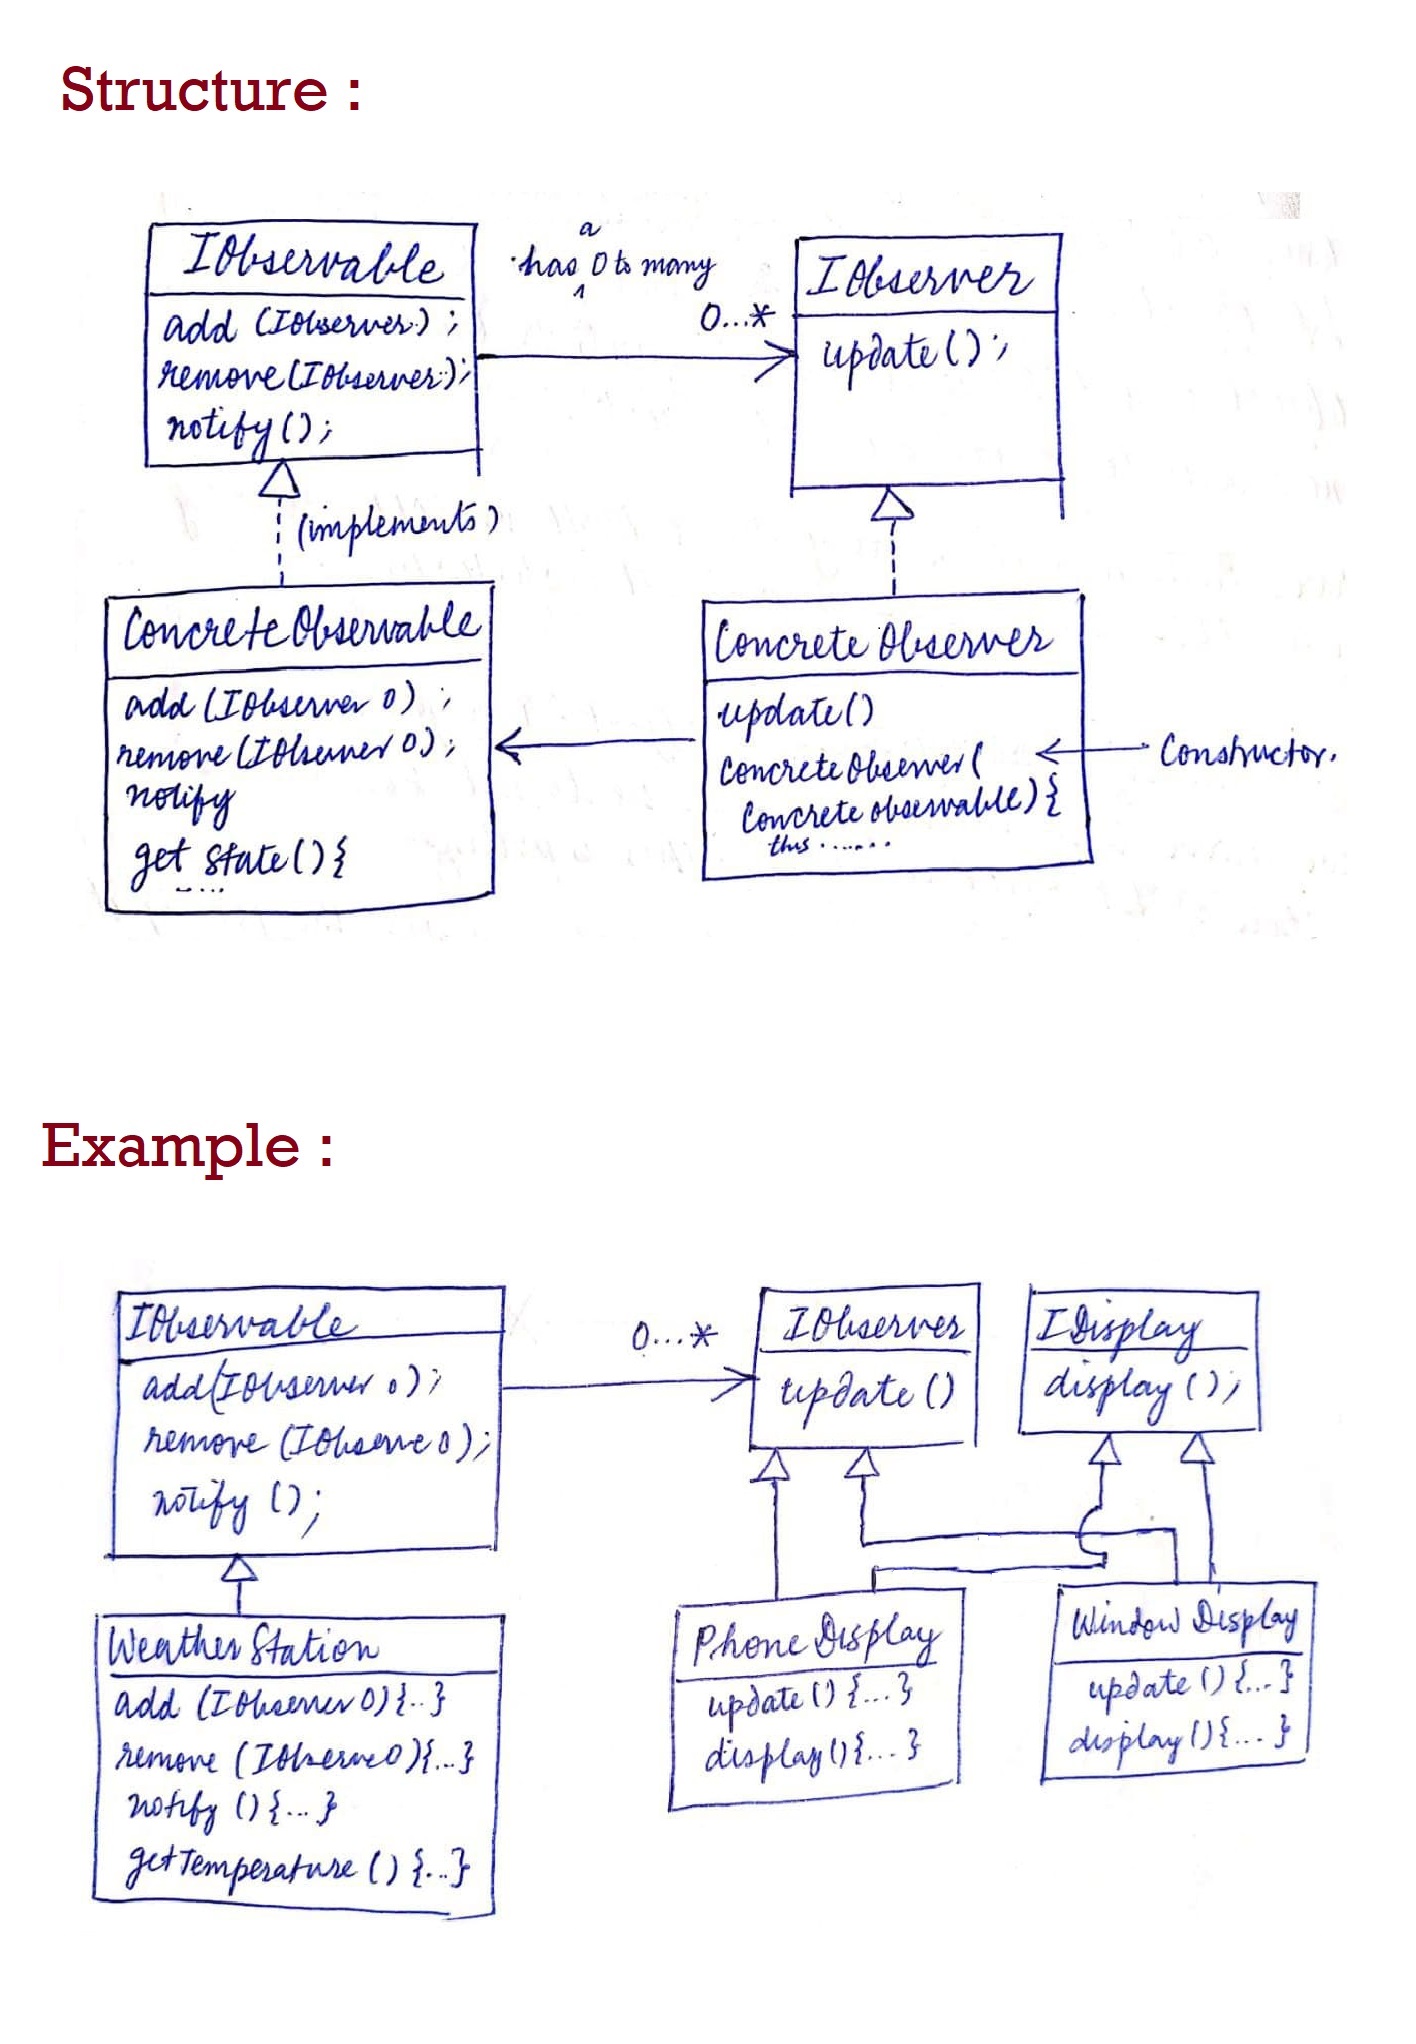 Structure :
IObservable
add (IObserver) ;
remove (IObserver);
notify ();
a
has 0 to many
^
0...*
IObserver
update () ;
(implements)
Concrete Observable
add (IObserver O) ;
remove (IObserver O) ;
notify
get state () {
.....
Concrete Observer
update ()
Concrete Observer (
Concrete observable) {
this ......
Constructor.
Example :
IObservable
add (IObserver o) ;
remove (IObserve O) ;
notify () ;
0...*
IObserver
update ()
IDisplay
display () ;
Weather Station
add (IObserver O) {...}
remove (IObserve O) {...}
notify () {...}
getTemperature () {...}
Phone Display
update () {...}
display () {...}
Window Display
update () {...}
display () {...}